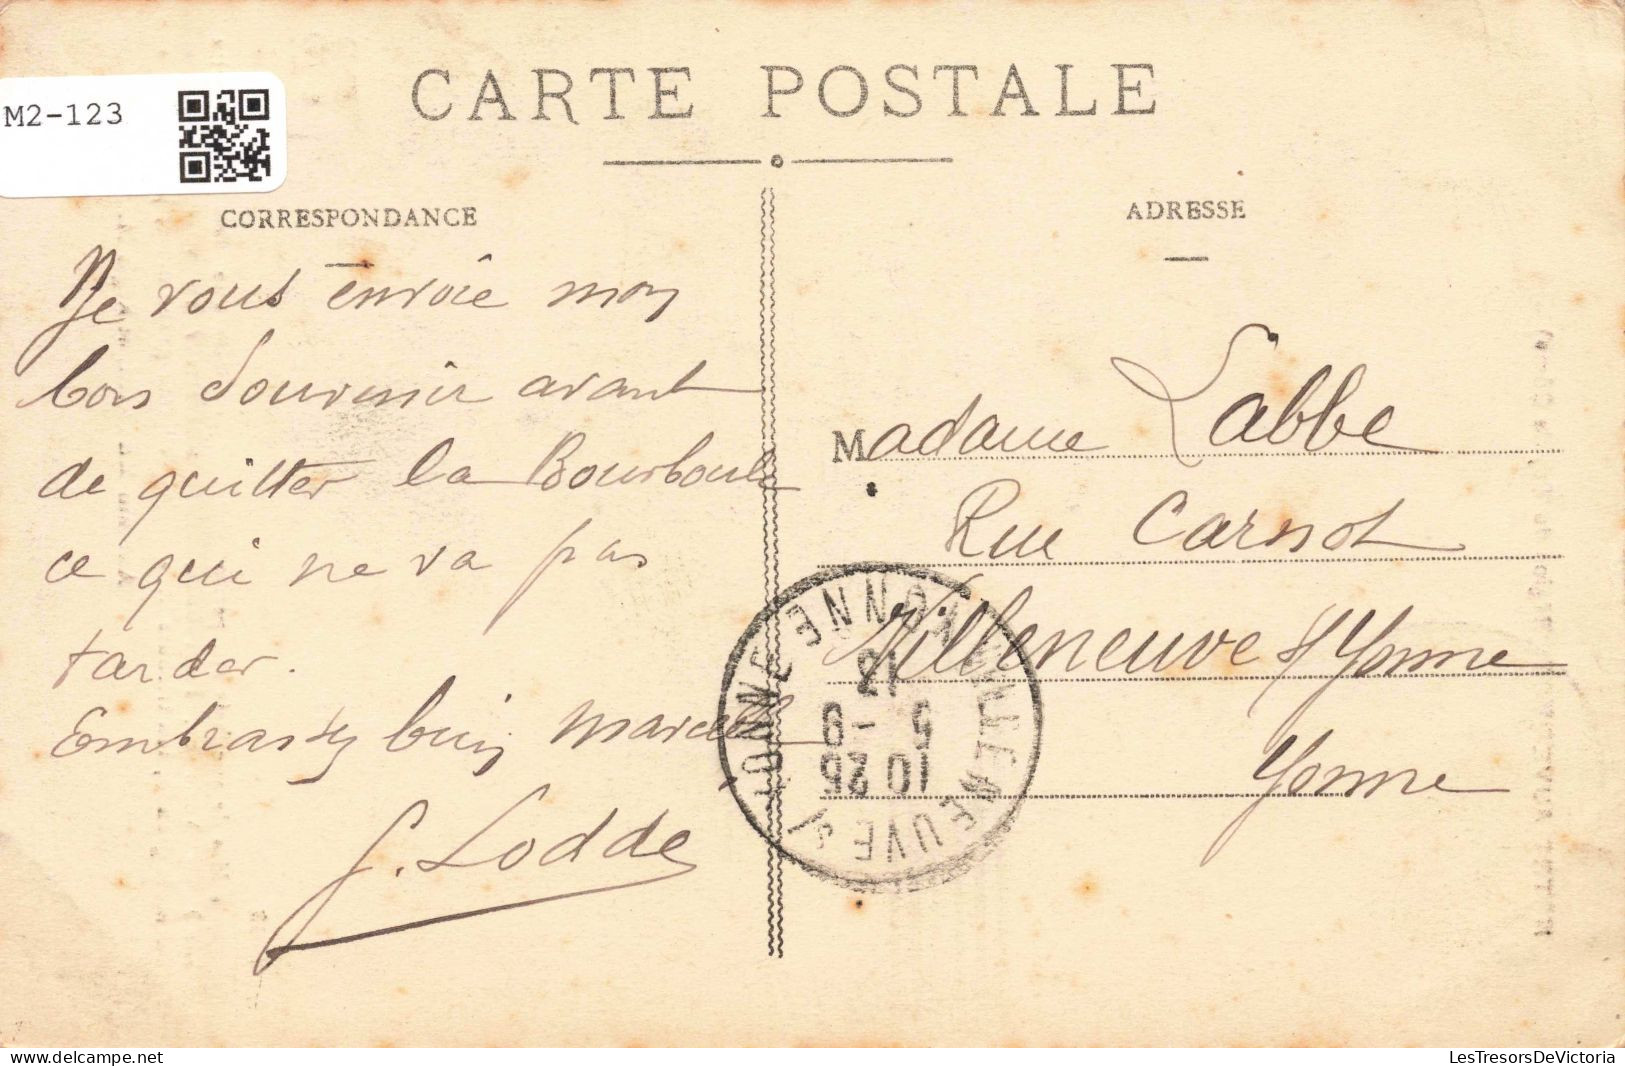 M2-123
CARTE POSTALE
CORRESPONDANCE
Je vous envoie mon
bon Souvenir avant
de quitter la Bourboule
ce qui ne va pas
tarder.
Embrassez bien Marcelle
G. Lodde
ADRESSE
Madame Labbe
Rue Carnot
Villeneuve s/ Yonne
Yonne
VILLENEUVE S/ YONNE YONNE
10 25
5 - 9
13
www.delcampe.net
LesTresorsDeVictoria